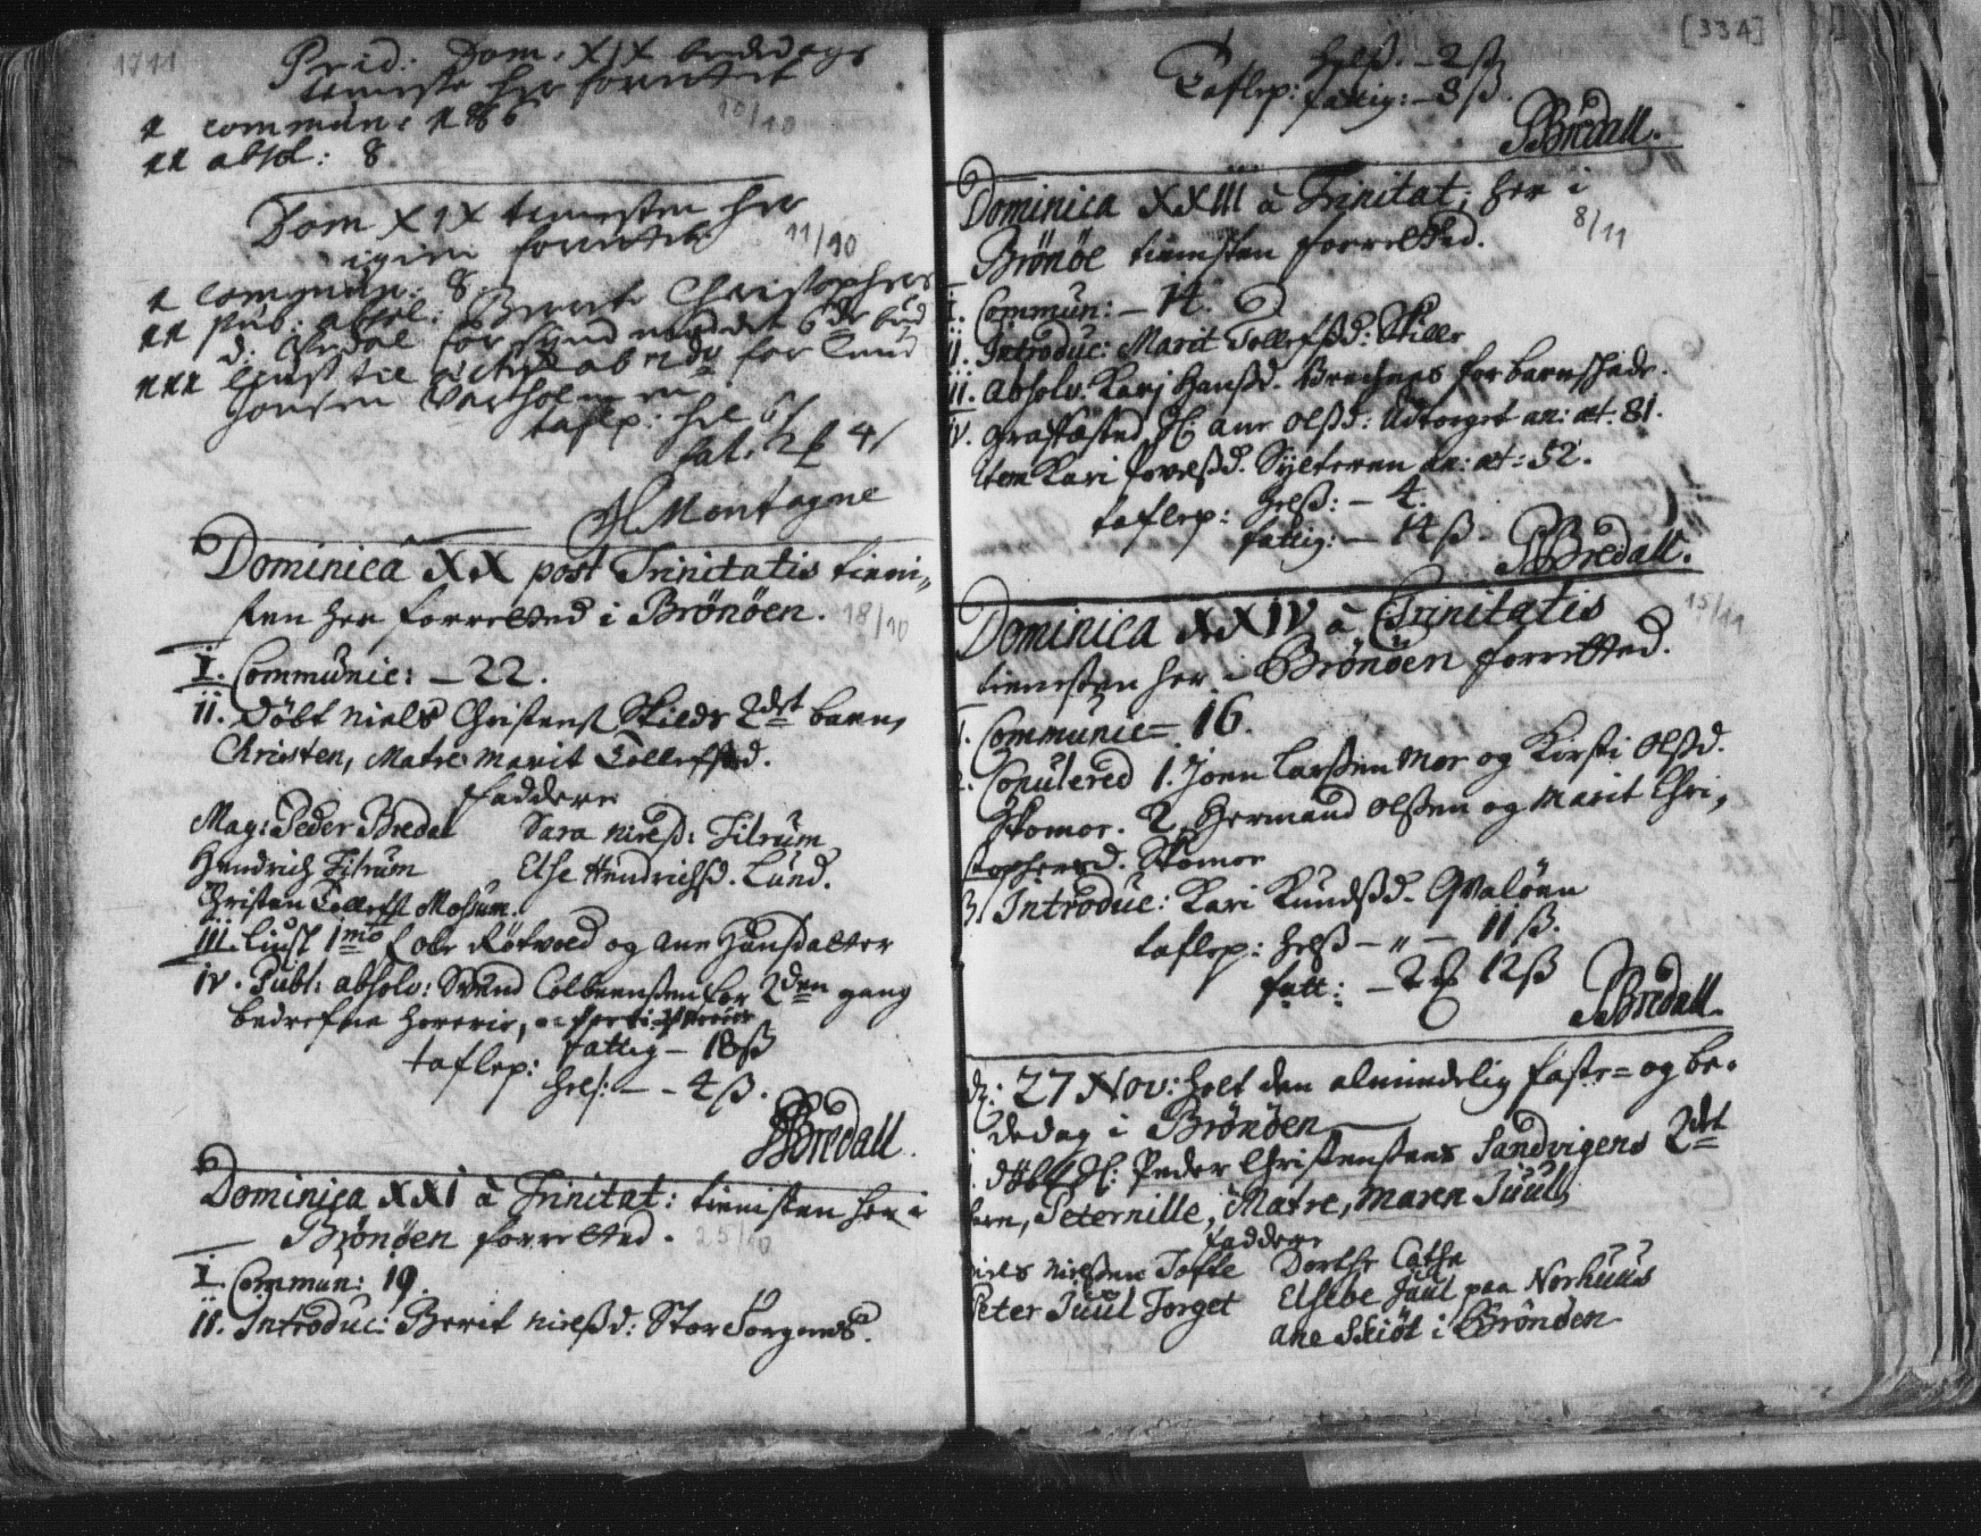 1711
Prid: Dom: XIX bededags
tienniste her forrettet
10/10
1 commun: 186
11 absol: 8
Dom XIX tiennesten her
igien forrettet
11/10
1 Commun: 8.
11 pub: absol: Berit Christophers
d: for synd mod det 6de bud
111 liust til ächteskab 2dn for Knud
Jonsen
taflp: hel 6
fat. 2 4
Montagne
Dominica XX post Trinitatis tieni„
sten her forretted i Brönöen.
18/10
I. Communic: – 22.
II. döbt Niels Christens Skilds 2det barn,
Christen, Matre Marit Tollefsd.
faddere
Mag: Peder Bredal Sara Nielsd: Titrum
Hendrich Titrum Else Hendrichsd. Lund.
Christen Tollefs Mosum.
III. liust 1mo Ole Rötvold og Ane Hansdatter
IV. Publ: absolv: Svend Colbensen for 2den gang
bedrefne horerie,
taflep: fattig – 18ß
hels: – – 4 ß.
PBredall.
Dominica XXI à Trinitat: tienisten her i
Brönöen forretted.
25/10
I. Commun: 19.
II. Introduc: Berit Nielsd: StorTorgnes.
[334]
helß. – 2ß
Taflep: fattig: – 8ß.
PBredall.
Dominica XXIII à Trinitat: her i
Brönöe tienisten forretted.
8/11
I. Commun: – 14.
II. Introduc: Marit Tollefsd: Skille
III. Absolv: Karj Hansd. for barnefade.
IV. Graffæsted Sl: Ane Olsd: Udtorget an: æt. 81.
item Kari Povelsd. Sylteren an: æt: 52.
taflep: helß: – 4.
fattig: – 14 ß.
PBredall.
Dominica XXIV à Trinitatis
15/11
tienisten her i Brönöen forretted.
1. Communic= 16.
2. Copulered 1. Joen Larsen Moe og Kirsti Olsd.
Skomoe. 2. Hermand Olsen og Marit Chri„
stophersd. Skomoe
3. Introduc: Kari Knudsd. Qvalöen
taflep: helß – „ – 11 ß.
fatt: – 2 12ß
PBredall.
d: 27 Nov: holt den almindelig faste= og be„
dedag i Brönöen
1. döbt Sl: Peder Christensens Sandvigens 2det
barn, Peternille, Matre, Maren Juul,
faddere
Niels Nielsen Tofte Dorthe Cathe
Peter Juul Torget Elsebe Juul paa Norhuus
Ane Skiöt i Brönöen